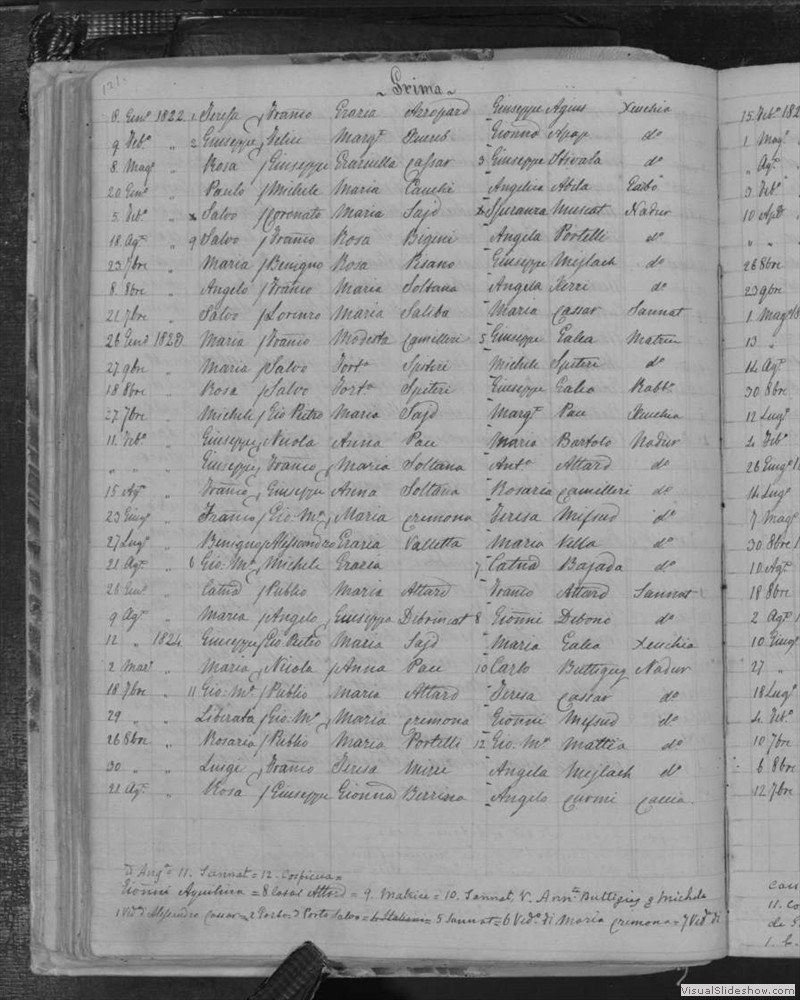 121.
~ Prima ~
8 Gen° 1822 1 Teresa / Franco Grazia Axopard Giuseppe Agius Xeuchia
9 Feb° " 2 Giuseppe / Felice Margta Giovna Apap do
8 Mago " Rosa / Giuseppe Graziulla Cassar 3 Giuseppe Stivala do
20 Gen° " Paulo / Michele Maria Cauchi Angelica Abela Garbo
5 Feb° " Salvo / Coronato Maria Sajd Speranza Muscat Nadur
18 Ago " 9 Salvo / Franco Rosa Bigeni Angela Portelli do
23 7bre " Maria / Benigno Rosa Pisano Giuseppe Mejlach do
8 8bre " Angelo / Franco Maria Soltana Angela Xerri do
21 7bre " Salvo / Lorenzo Maria Saliba Maria Cassar Sannat
26 Gen° 1823 Maria / Franco Modesta Camilleri 5 Giuseppe Galea Matrice
27 9bre " Maria / Salvo Forta Spiteri Michele Spiteri do
18 8bre " Rosa / Salvo Forta Spiteri Giuseppe Galea Rabbo
27 7bre " Michele / Gio Pietro Maria Sajd Margta Pau Xeuchia
11 Feb° " Giuseppe / Nicola Anna Pau Maria Bartolo Nadur
" " " Giuseppe / Franco / Maria Soltana Anto Attard do
15 Ago " Franco / Giuseppe Anna Soltana Rosaria Camilleri do
23 Giugo " Franco / Gio: Ma / Maria Cremona Teresa Mifsud do
27 Lugo " Benigno / Alessandro Grazia Valletta Maria Vella do
21 Ago " 6 Gio: Ma / Michele Grazia 7 Catna Bajada do
26 Gen° " Catna / Publio Maria Attard Franco Attard Sannat
9 Ago " Maria / Angelo / Giuseppa Debrincat 8 Giovni Debono do
12 " 1824 Giuseppe / Gio Pietro Maria Sajd Maria Galea Xeuchia
2 Marzo " Maria / Nicola / Anna Pau 10 Carlo Buttigieg Nadur
18 7bre " 11 Gio: Ma / Publio Maria Attard Teresa Cassar do
29 " " Liberata / Gio: Ma / Maria Cremona Giovni Mifsud do
26 8bre " Rosaria / Publio Maria Portelli 12 Gio. Ma Mattia do
30 " " Luigi / Franco Teresa Angela Mejlach do
21 Ago " Rosa / Giuseppe Giovna Angelo Curmi Caccia.
11. Sannat = 12. Cospicua =
Giovni Aquilina = 8 Casal Attard = 9. Matrice = 10. Sannat, V. Anna Buttigieg & Michele
1 Vido di Alessandro Cassar = 2 Garbo 3 Porto Salvo = 4 Italiani = 5 Sannat = 6 Vedo di Maria Cremona = 7 Vedo di
15 Feb° 182
1 Mago
" Ago
3 Feb°
10 Aple
" "
26 8bre
23 9bre
1 Mag° 18
13 "
14 Ago
30 8bre
12 Lugo
2 Feb°
26 Giugo 1
14 Lugo
7 Mago
30 8bre 1
10 Ago
18 8bre
2 Ago 1
10 Giugo
27 "
18 Lugo
4 Feb°
10 7bre
6 8bre
12 7bre
11. Co
1. b.
VisualSlideshow.com